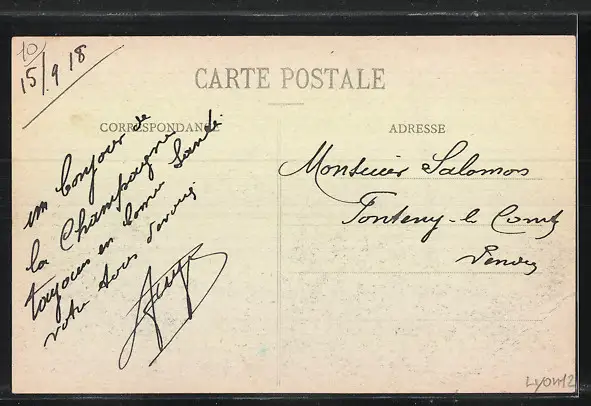 10
15/9 18
CARTE POSTALE
CORRESPONDANCE
ADRESSE
un bonjour de
la Champagne
toujours en bonne Santé
votre tous
Monsieur Salomon
Fontenay-le Comte
Vendée
Lyon12